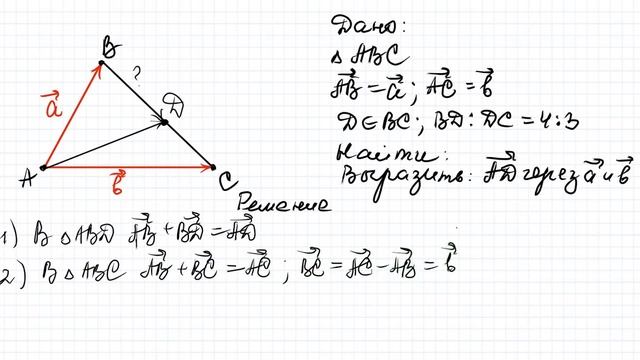 Дано:
△ ABC
AB⃗ = a⃗; AC⃗ = b⃗
D ∈ BC; BD : DC = 4:3
Найти:
Выразить: AD⃗ через a⃗ и b⃗
B
?
a⃗
D
A
b⃗
C
Решение
1) В △ ABD AB⃗ + BD⃗ = AD⃗
2) В △ ABC AB⃗ + BC⃗ = AC⃗; BC⃗ = AC⃗ - AB⃗ = b⃗